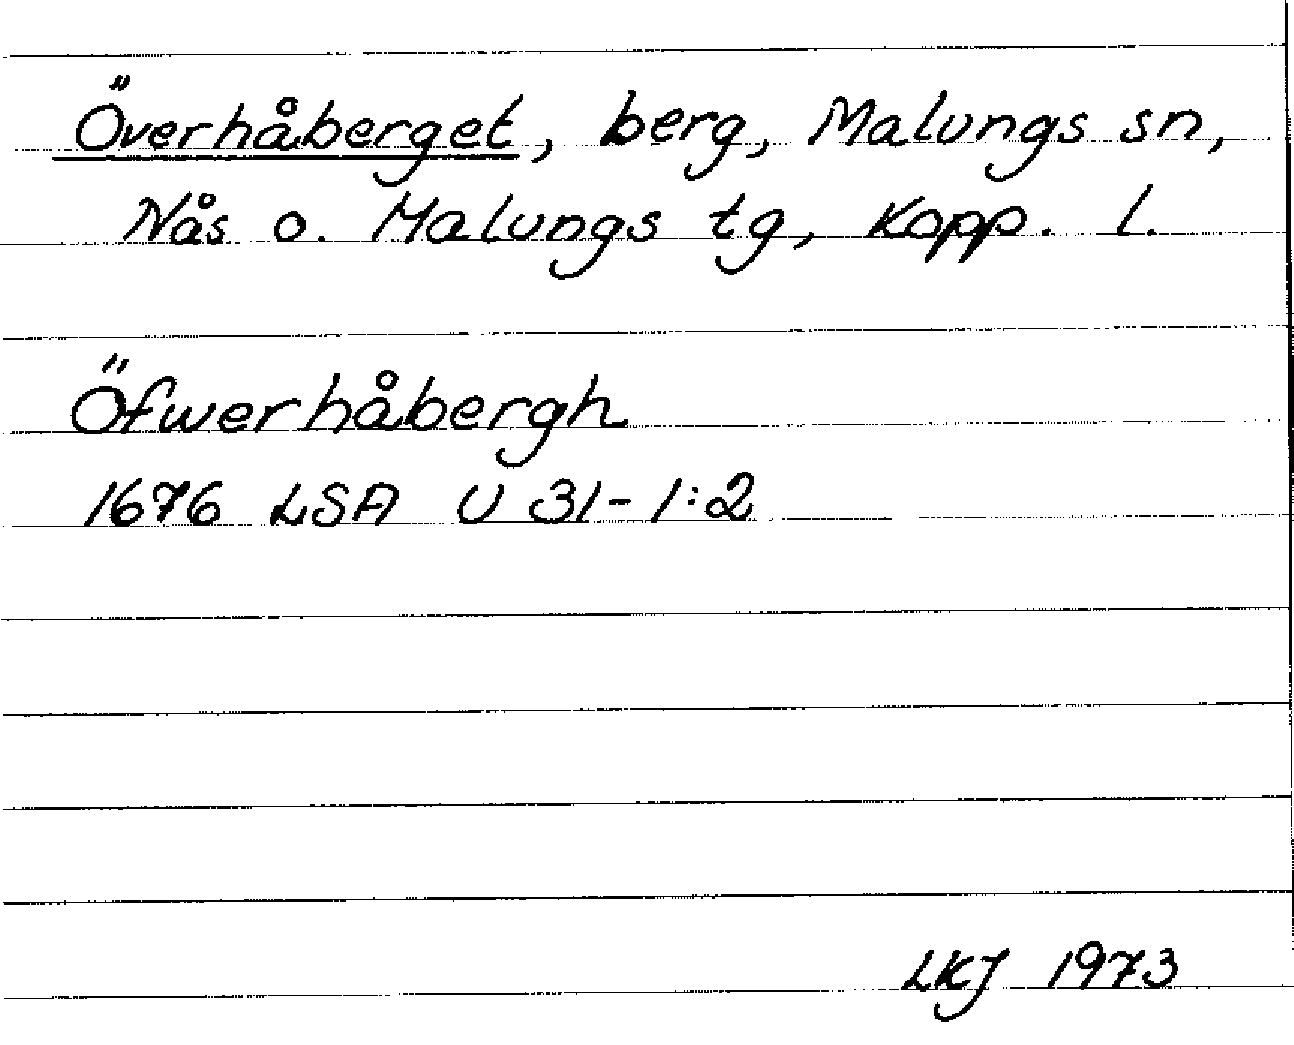 Överhåberget, berg, Malungs sn,
Nås o. Malungs tg, Kopp. l.
Öfwerhåbergh
1676 LSA U 31-1:2
LKJ 1973